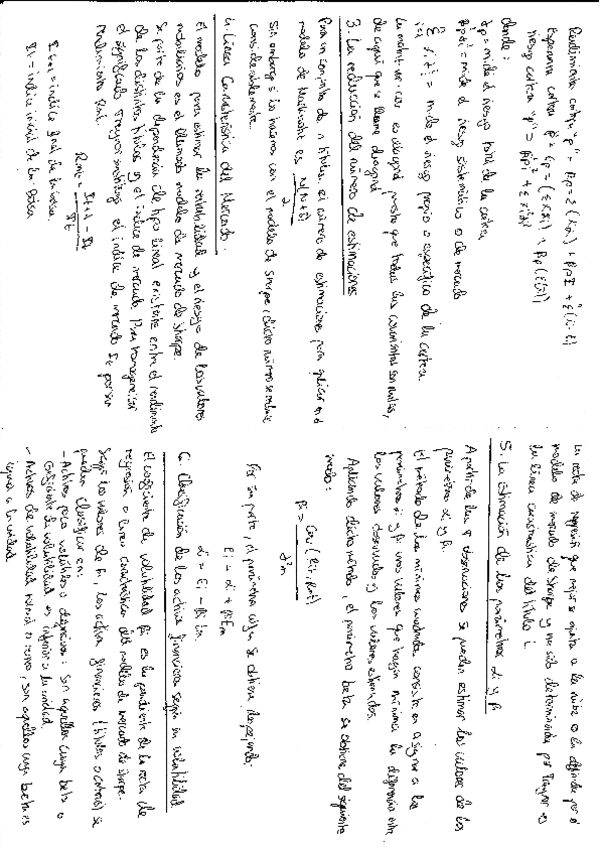 Rendimiento cartera "p" = Rp = Σ (Xi αi) + βp I + Σ (Xi · εi)
Esperanza cartera "p" = Ep = (Σ Xi αi) + βp (E(I))
riesgo cartera "p" = βp² + Σ xi²
donde:
σp² = mide el riesgo total de la cartera
mide el riesgo sistemático o de mercado
= mide el riesgo propio o específico de la cartera
La matriz es diagonal puesto que todas las covarianzas son nulas,
de aquí que se llame diagonal
3. La reducción del número de estimaciones
Para un conjunto de n títulos, el número de estimaciones para aplicar en el
modelo de Markowitz es N(N+3)/2
Sin embargo si lo hacemos con el modelo de Sharpe, dicho número se reduce
considerablemente.
4. Línea Característica del Mercado.
El modelo para estimar la rentabilidad y el riesgo de los valores
mobiliarios es el llamado modelo de mercado de Sharpe.
Se parte de la dependencia de tipo lineal existente entre el rendimiento
de los distintos títulos y el índice de mercado. Para homogeneizar
el significado Treynor sustituye el índice de mercado It por su
rendimiento Rmt.
Rmt = It+1 - It / It
It+1 = índice final de la bolsa
It = índice inicial de la Bolsa
La recta de regresión que mejor se ajusta a la nube es la definida por el
modelo de mercado de Sharpe y ha sido determinada por Treynor es
la línea característica del título i
5. La Estimación de los parámetros α y β
A partir de las observaciones se pueden estimar los valores de los
parámetros αi y βi.
El método de los mínimos cuadrados consiste en asignar a los
parámetros αi y βi unos valores que hagan mínima la diferencia entre
los valores observados y los valores estimados.
Aplicando dicho método, el parámetro beta se obtiene del siguiente
modo:
βi = Cov (Ri, Rm) / σ²m
Por su parte, el parámetro alfa se obtiene despejando:
Ei = αi + βi Em
αi = Ei - βi Em
6. Clasificación de los activos financieros según su volatilidad
El coeficiente de volatilidad βi es la pendiente de la recta de
regresión o línea característica del modelo de mercado de Sharpe.
Según los valores de βi, los activos financieros (títulos o carteras) se
pueden clasificar en:
- Activos poco volátiles o defensivos: Son aquellos cuya beta o
coeficiente de volatilidad es inferior a la unidad.
- Activos de volatilidad normal o neutros, son aquellos cuya beta es
igual a la unidad